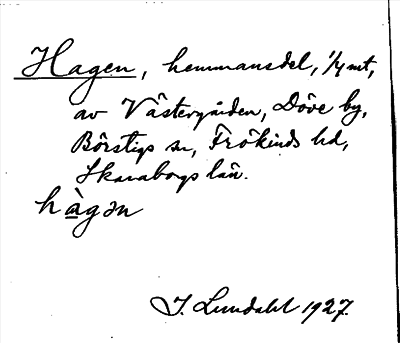 Hagen, hemmansdel, 1/4 mt,
av Västergården, Döve by,
Börstigs sn, Frökinds hd,
Skaraborgs län.
hàgən
J. Lundahl 1927.